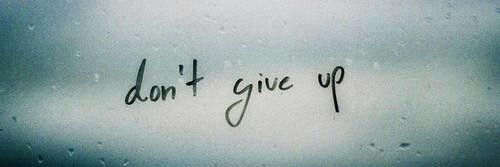 don't give up